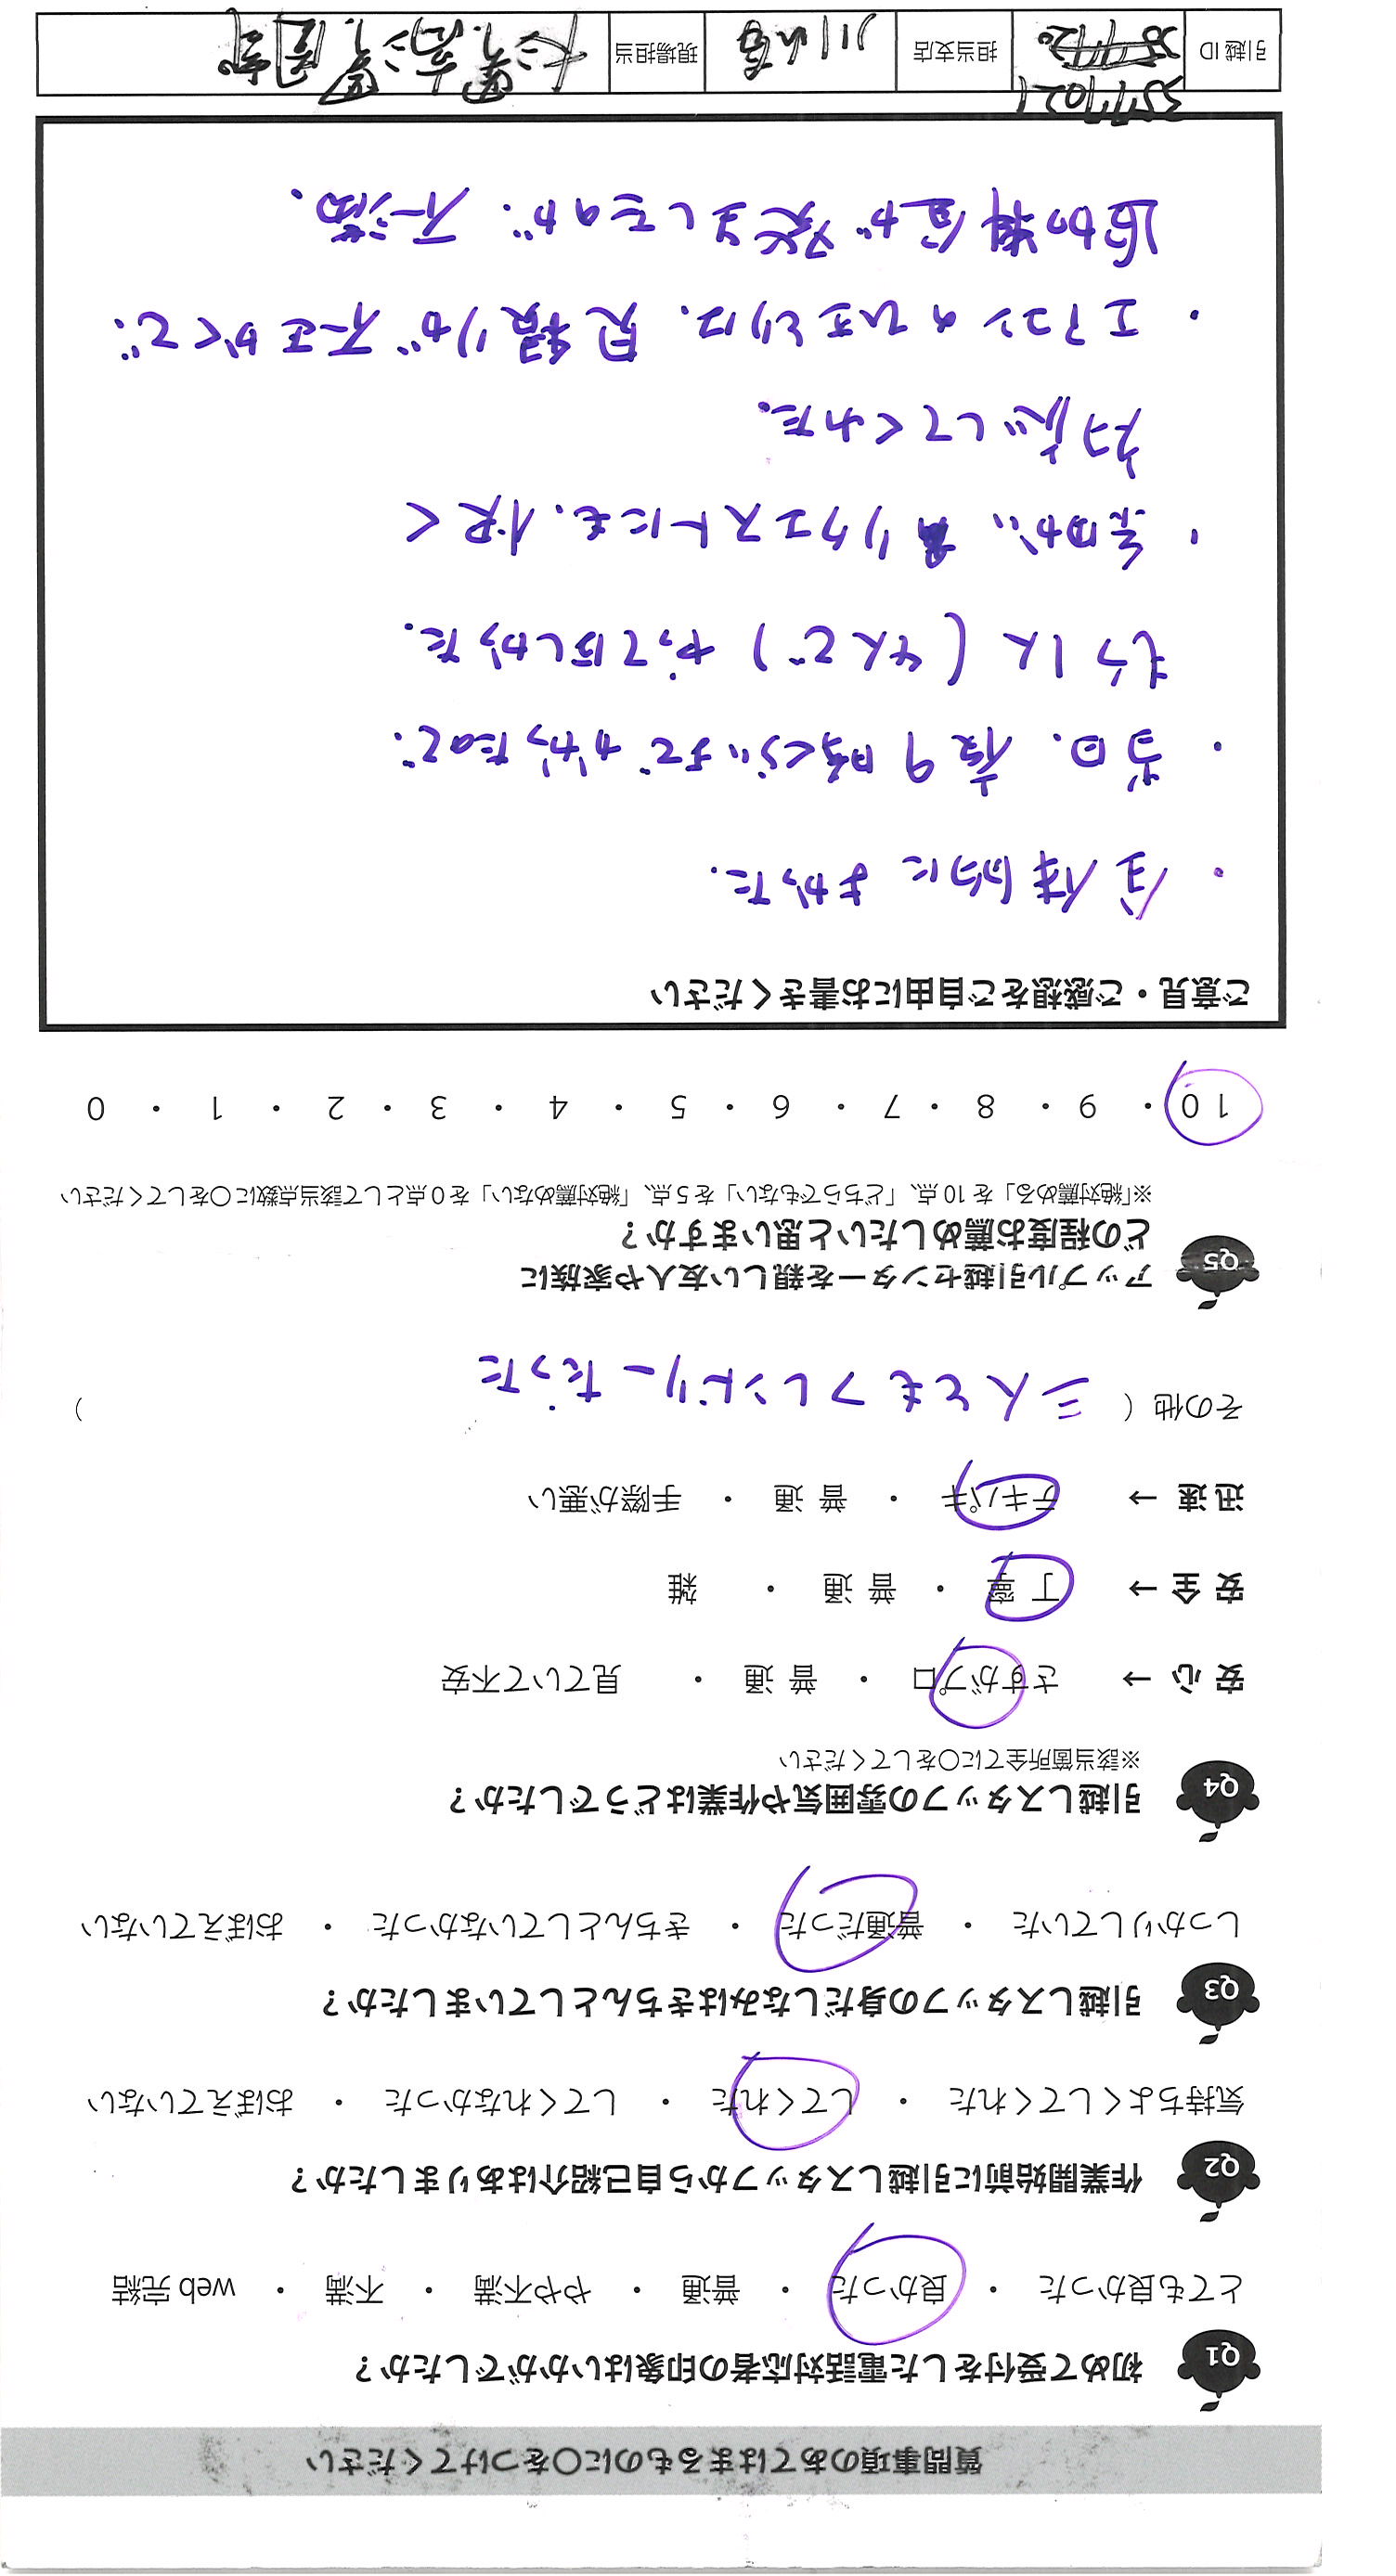 質問事項のあてはまるものに〇をつけてください
Q1 初めて受付をした電話対応者の印象はいかがでしたか？
とても良かった ・ 良かった ・ 普通 ・ やや不満 ・ 不満 ・ web 完結
Q2 作業開始前に引越しスタッフから自己紹介はありましたか？
気持ちよくしてくれた ・ してくれた ・ してくれなかった ・ おぼえていない
Q3 引越しスタッフの身だしなみはきちんとしていましたか？
しっかりしていた ・ 普通だった ・ きちんとしていなかった ・ おぼえていない
Q4 引越しスタッフの雰囲気や作業はどうでしたか？
※該当箇所全てに〇をしてください
安 心 → さすがプロ ・ 普 通 ・ 見ていて不安
安 全 → 丁 寧 ・ 普 通 ・ 雑
迅 速 → テキパキ ・ 普 通 ・ 手際が悪い
その他（ 三人ともフレンドリーだった ）
Q5 アップル引越センターを親しい友人や家族に
どの程度お薦めしたいと思いますか？
※「絶対薦める」を 10 点、「どちらでもない」を 5 点、「絶対薦めない」を 0 点として該当点数に〇をしてください
10 ・ 9 ・ 8 ・ 7 ・ 6 ・ 5 ・ 4 ・ 3 ・ 2 ・ 1 ・ 0
ご意見・ご感想をご自由にお書きください
・全体的に よかった.
・当日、夜9時くらいまでかかったので、
もう1人（4人で）やってほしかった.
・急な リクエストにも、快く
対応してくれた.
・エアコンのひきとりは、見積りが不正かくで、
追加料金が発生したのが、不満.
引越 ID 担当支店 現場担当